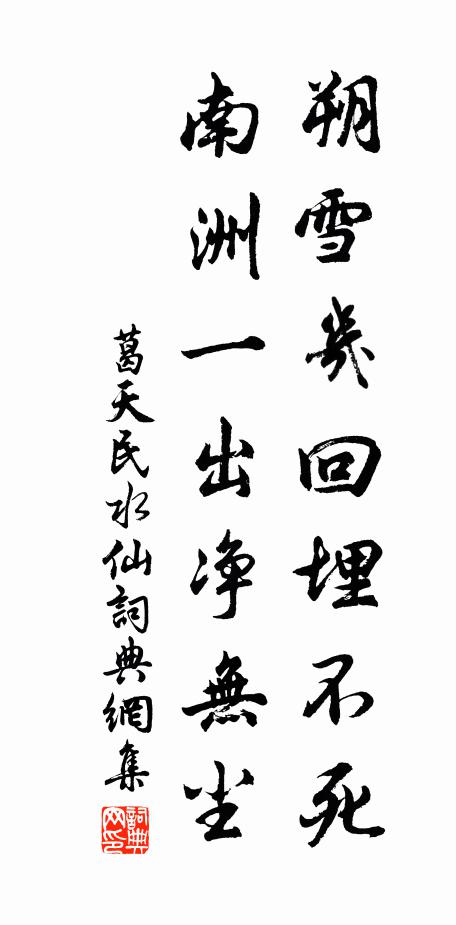 朔雪幾回埋不死
南洲一出净無尘
葛天民水仙詞典網集
詞典网印